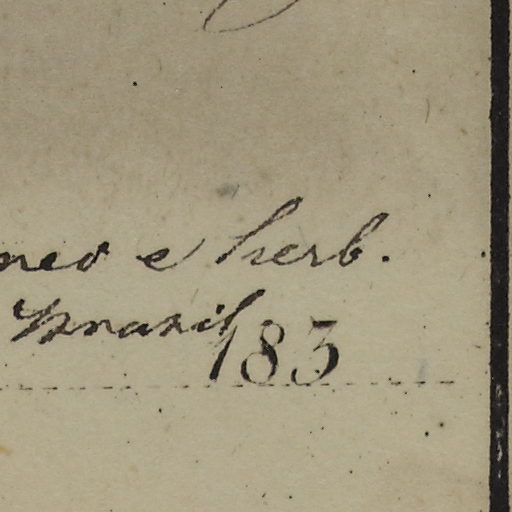 meo e herb.
Brasil
183